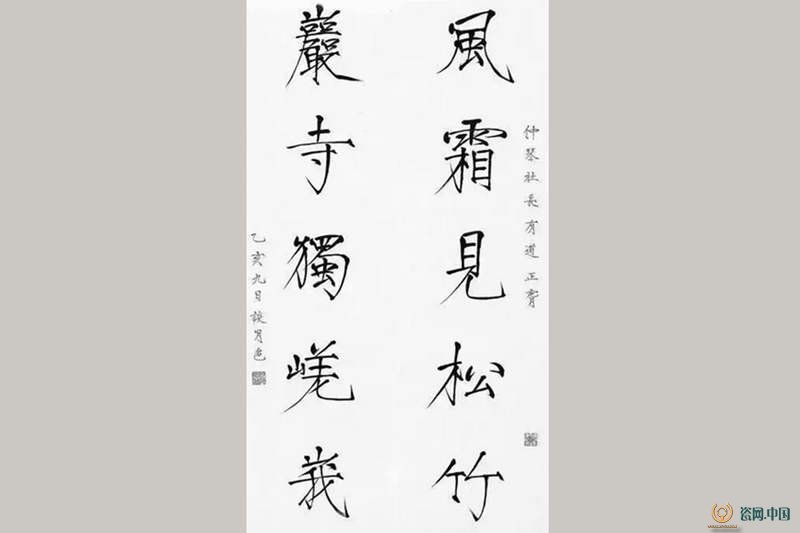 仲琴社長有道正
風霜見松竹
巖寺獨嵯峨
乙亥九月談月色
瓷网.中国